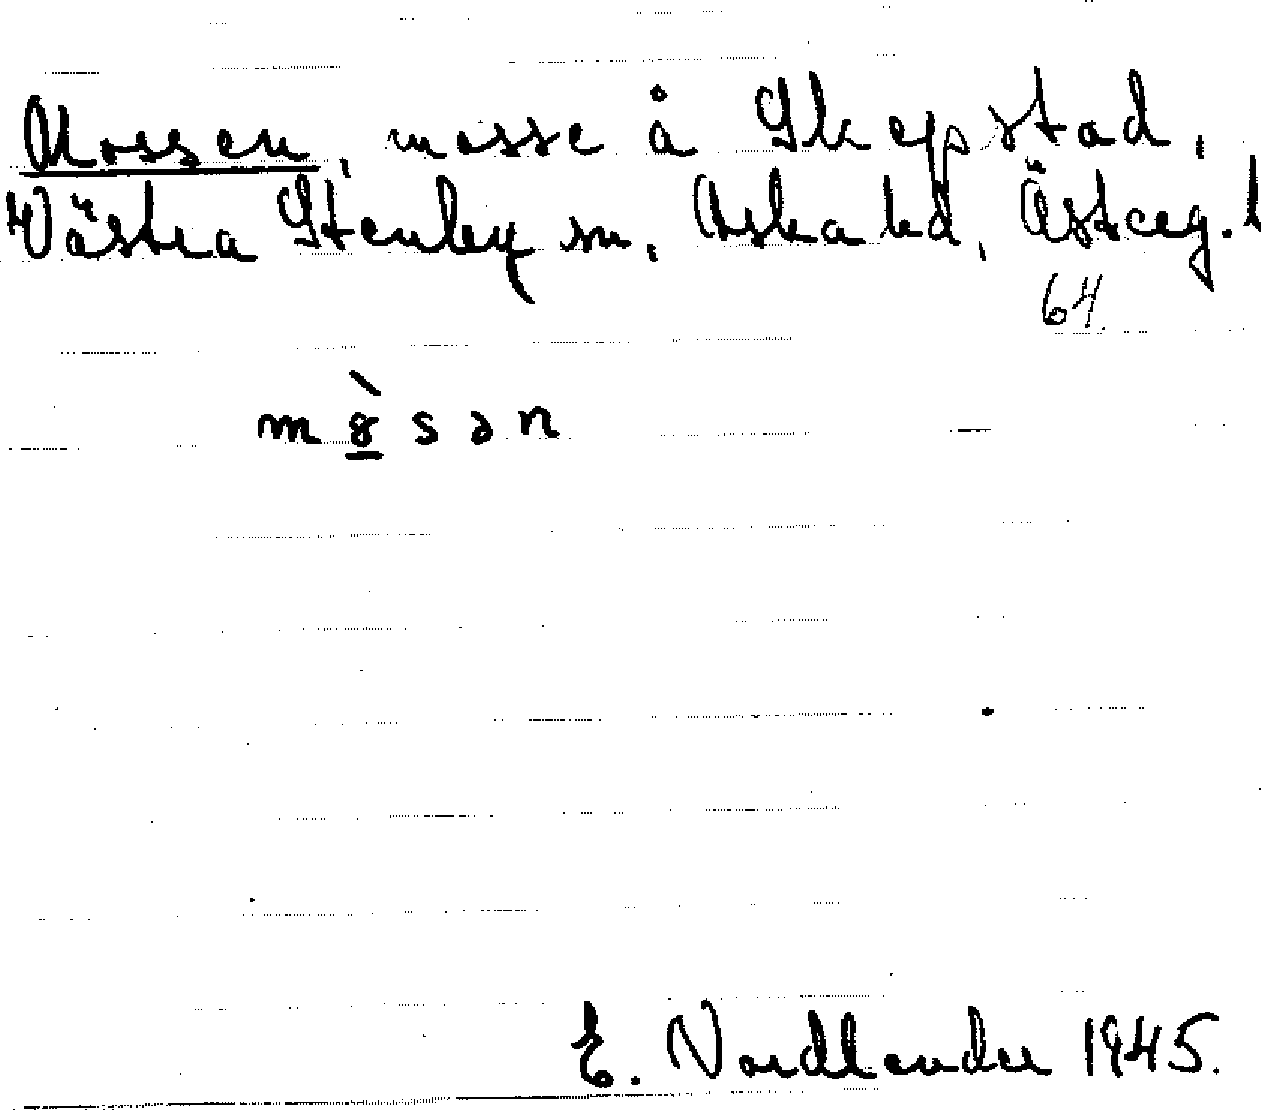 Mossen, mosse å Skepstad,
Västra Stenby sn, Aska hd, Österg. l
64.
mòsən
E. Nordlander 1945.